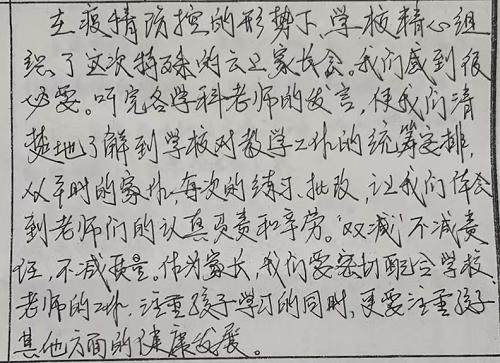 在疫情防控的形势下,学校精心组
织了这次特殊的云上家长会。我们感到很
必要。听完各学科老师的发言,使我们清
楚地了解到学校对教学工作的统筹安排,
从平时的家作,每次的练习、批改,让我们体会
到老师们的认真负责和辛劳。“双减”不减责
任,不减质量。作为家长,我们要密切配合学校、
老师的工作,注重孩子学习的同时,更要注重孩子
其他方面的健康发展。